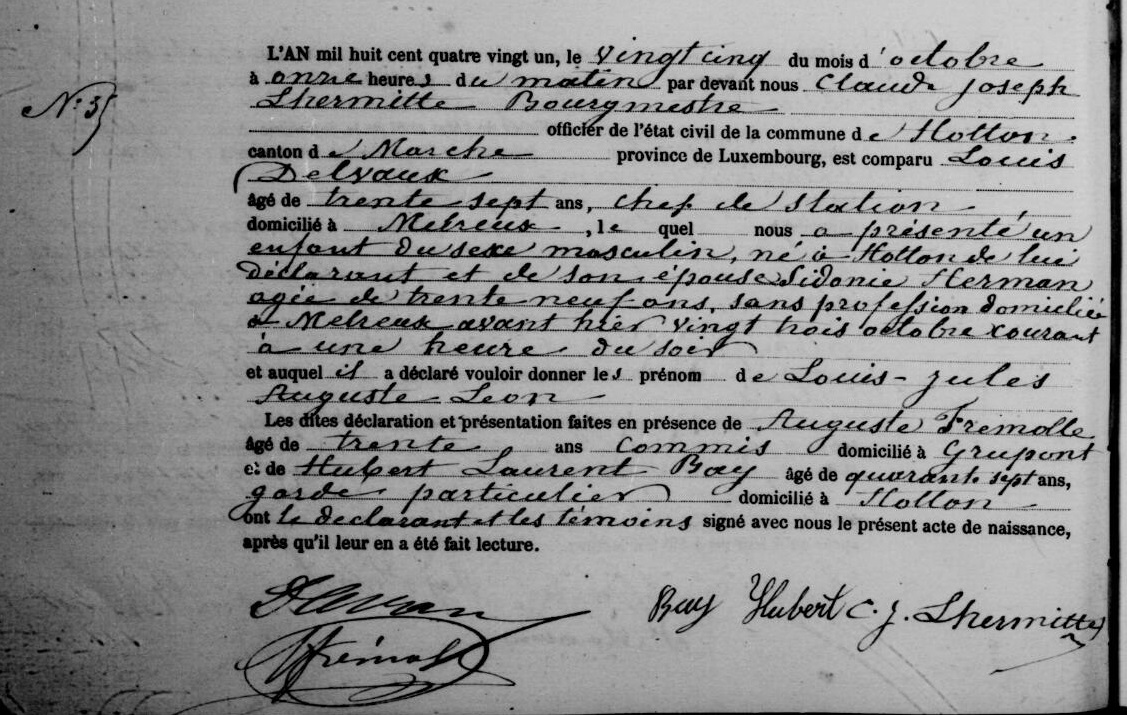 L'AN mil huit cent quatre vingt un, le vingt cinq du mois d'octobre
N° 35
à onze heures du matin par devant nous Claude Joseph
Lhermitte Bourgmestre
officier de l'état civil de la commune de Hotton
canton de Marche province de Luxembourg, est comparu Louis
Delvaux
âgé de trente sept ans, chef de Station,
domicilié à Melreux, lequel nous a présenté un
enfant du sexe masculin, né à Hotton de lui
déclarant et de son épouse Sidonie Herman
agée de trente neuf ans, sans profession domiciliée
à Melreux avant hier vingt trois octobre courant
à une heure du soir
et auquel il a déclaré vouloir donner les prénom de Louis-Jules
Auguste Leon
Les dites déclaration et présentation faites en présence de Auguste Frémolle,
âgé de trente ans commis domicilié à Grupont
et de Hubert Laurent Bay âgé de quarante sept ans,
garde particulier domicilié à Hotton
ont le declarant et les témoins signé avec nous le présent acte de naissance,
après qu'il leur en a été fait lecture.
Bay Hubert C. J. Lhermitte